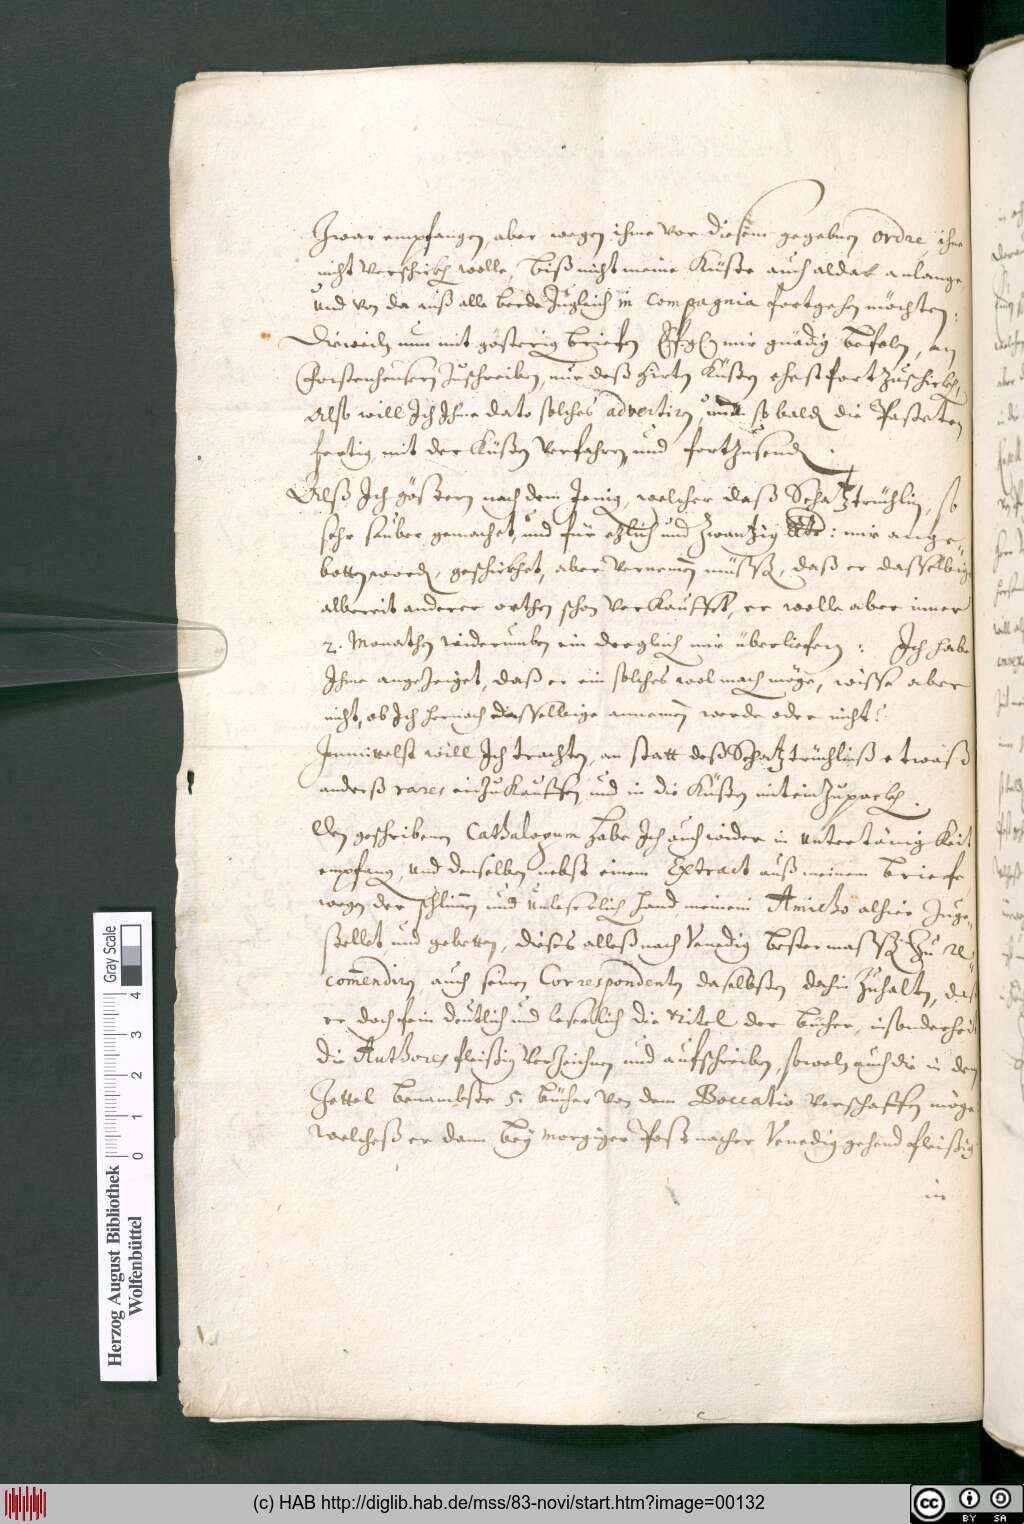 Zwar empfangen, aber wegen ihme vor diesem gegebnen ordre, ihne
nicht verschickh wolle, biß nicht meine Küste auch aldar anlange
und von da auß alle beede zugleich in compagnia fortgehen möchten:
Dieweiln nun mit gösterig briefen mir gnädig befolen, an
Forstenheusern zuschreiben, nur daß Küsten ehest fortzuschickh,
Also will Ich Ihme dato solches advertirn, und so bald die Pasteten
fertig, mit der Küsten verfahren, und fortzusend.
Alß Ich göstern nach dem Jenig, welcher daß Schatztrühlin, so
sehr sauber gemachet, und für etzlich und zwantzig mir ange-
botten word, geschickhet, aber vernemen müssen, daß er dasselbige
albereit anderer orthen schon verkaufft, er wolle aber inner
2. Monathen widerumben ein dergleich mir überliefern: Ich habe
Ihme angezeiget, daß er ein solches wol mach möge, wisse aber
nicht, ob Ich hernach dasselbige annemen werde oder nicht?
Inmittelst will Ich trachten, an statt deß Schatztrühlinß etwaß
anderß rares einzukauffen und in die Küsten mit einzupackh.
Den geschribenen Cathalogum habe Ich auch wider in untertänigkeit
empfang, und denselben nebst einem Extract auß meinem briefe,
wegen der schlimen und unleserlich hand, meinem Amicho alhier zuge-
stellet, und gebetten, dieses alleß nach Venedig bester massen zu re-
comendirn, auch seinen Correspondenten daselbsten dahin zuhalten, daß
er doch fein deutlich und leserlich die titel der bücher, insonderheit
die Authores fleißig verzeichnen und aufschreiben, sowoln auch die in dem
Zettel benambste 5. bücher von dem Boccatio verschaffen möge
welcheß er dann bey morgiger Post nacher Venedig gehend fleißig
in
Herzog August Bibliothek
Wolfenbüttel
Gray Scale
0 1 2 3 4
(c) HAB http://diglib.hab.de/mss/83-novi/start.htm?image=00132
cc BY SA